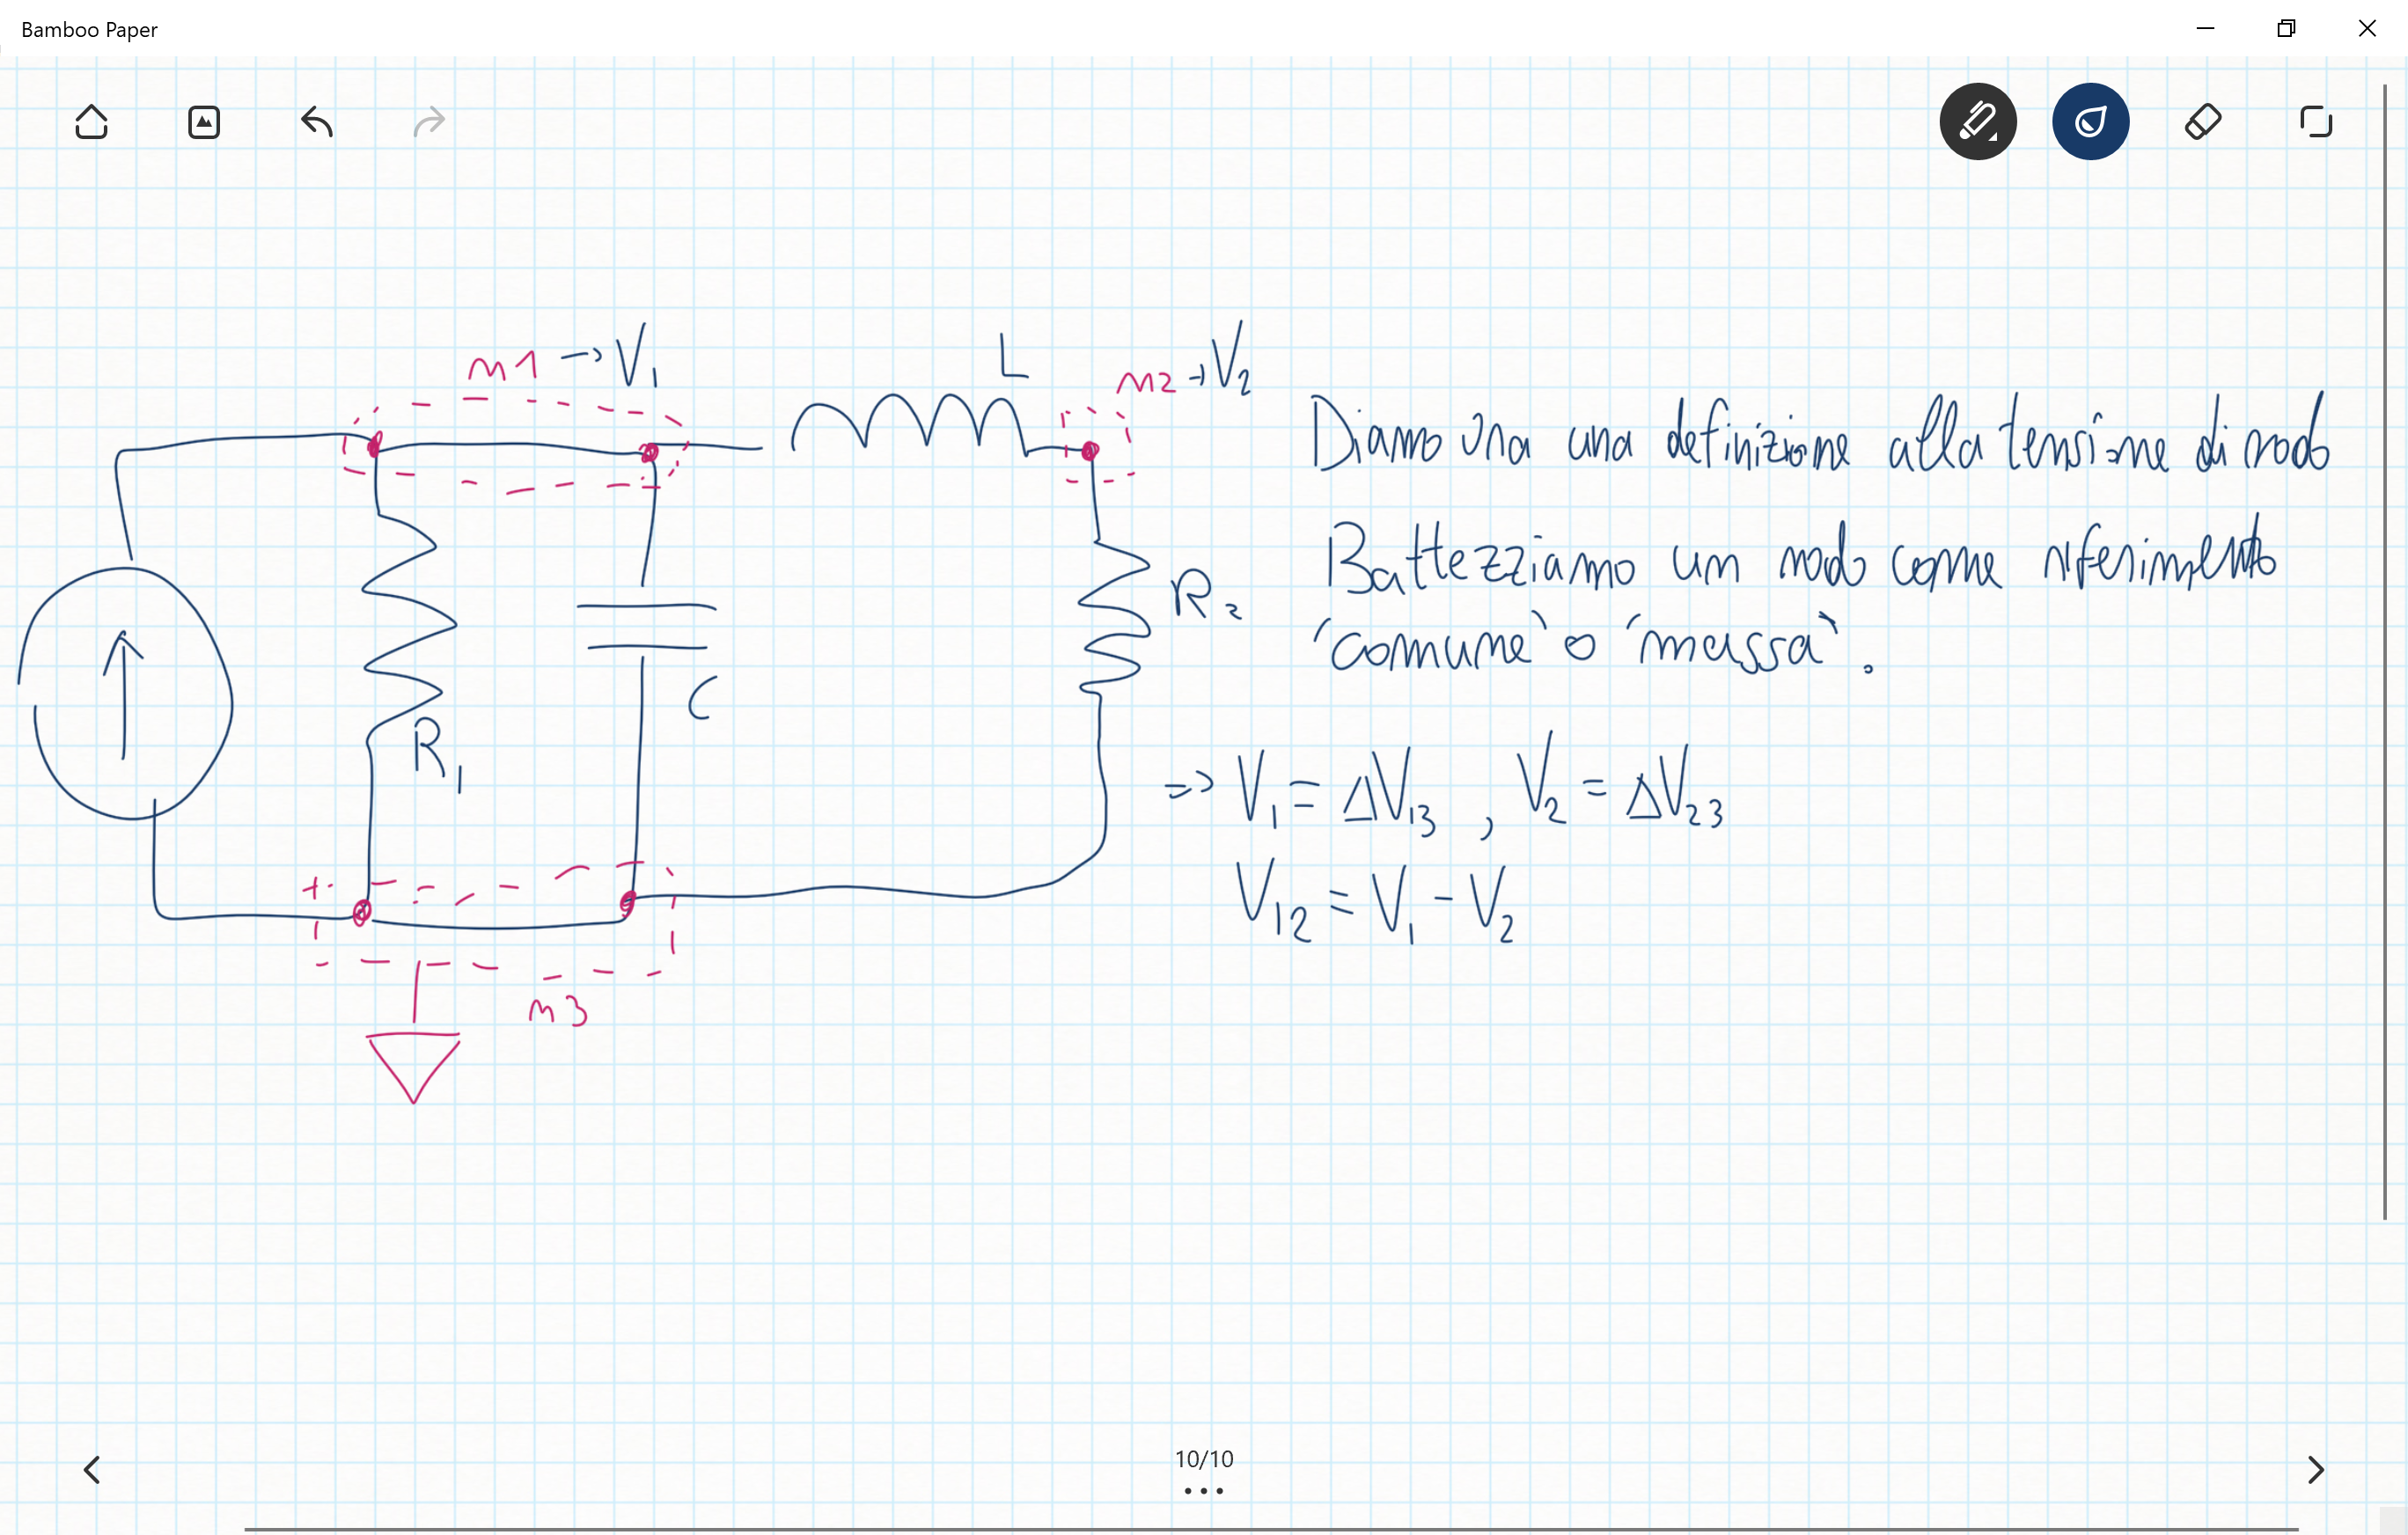 Bamboo Paper
m1 → V1
L
m2 → V2
Diamo una una definizione alla tensione di nodo
Battezziamo un nodo come riferimento
R2
"comune" o "massa".
C
R1
=> V1 = ΔV13 , V2 = ΔV23
V12 = V1 - V2
m3
10/10